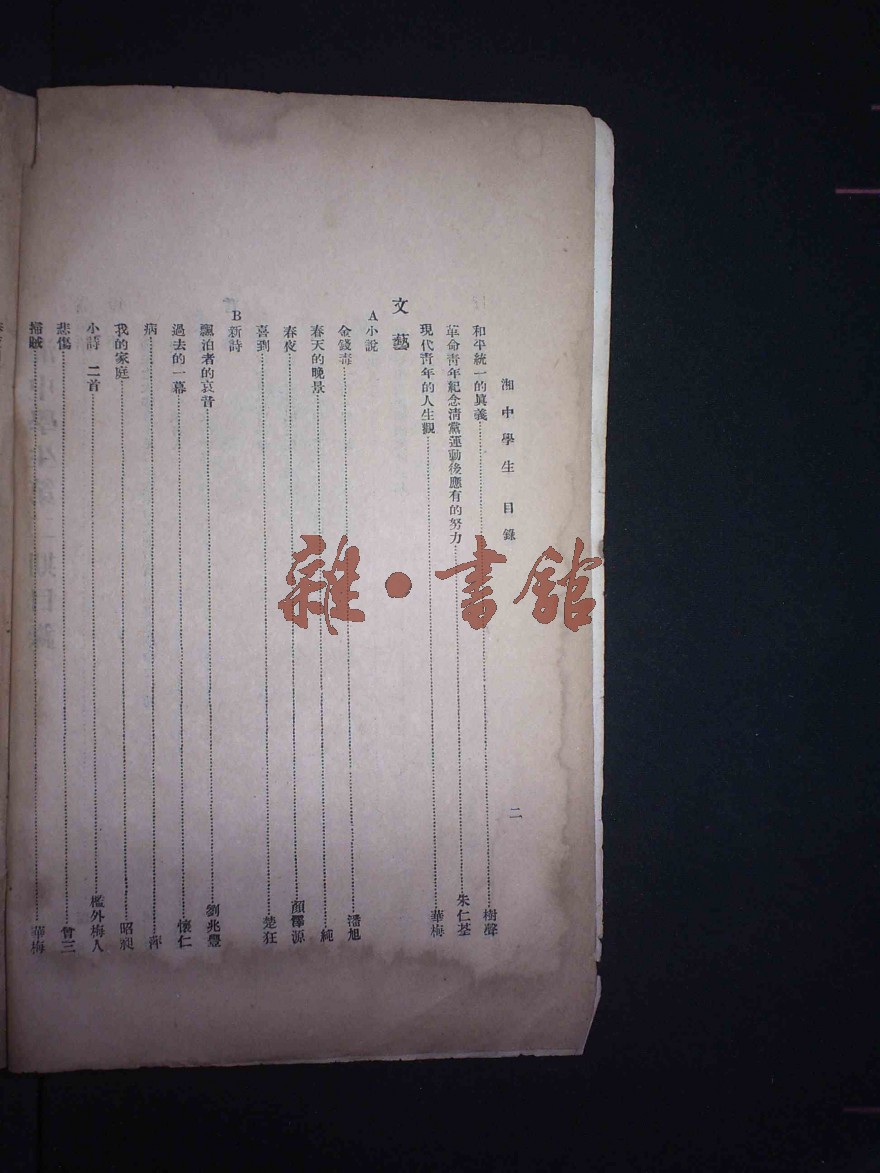 湘中學生 目錄
二
和平統一的眞義 樹聲
革命靑年紀念淸黨運動後應有的努力 朱仁荃
現代靑年的人生觀 華梅
文藝
A小說
金錢毒 潘旭
春天的晚景 純
春夜 顏澤源
喜到 楚狂
B新詩
飄泊者的哀音 劉兆豐
過去的一幕 懷仁
病 萍
我的家庭 昭昶
小詩 二首 檻外梅人
悲傷 曾三
掃賊 華梅
雜·書館